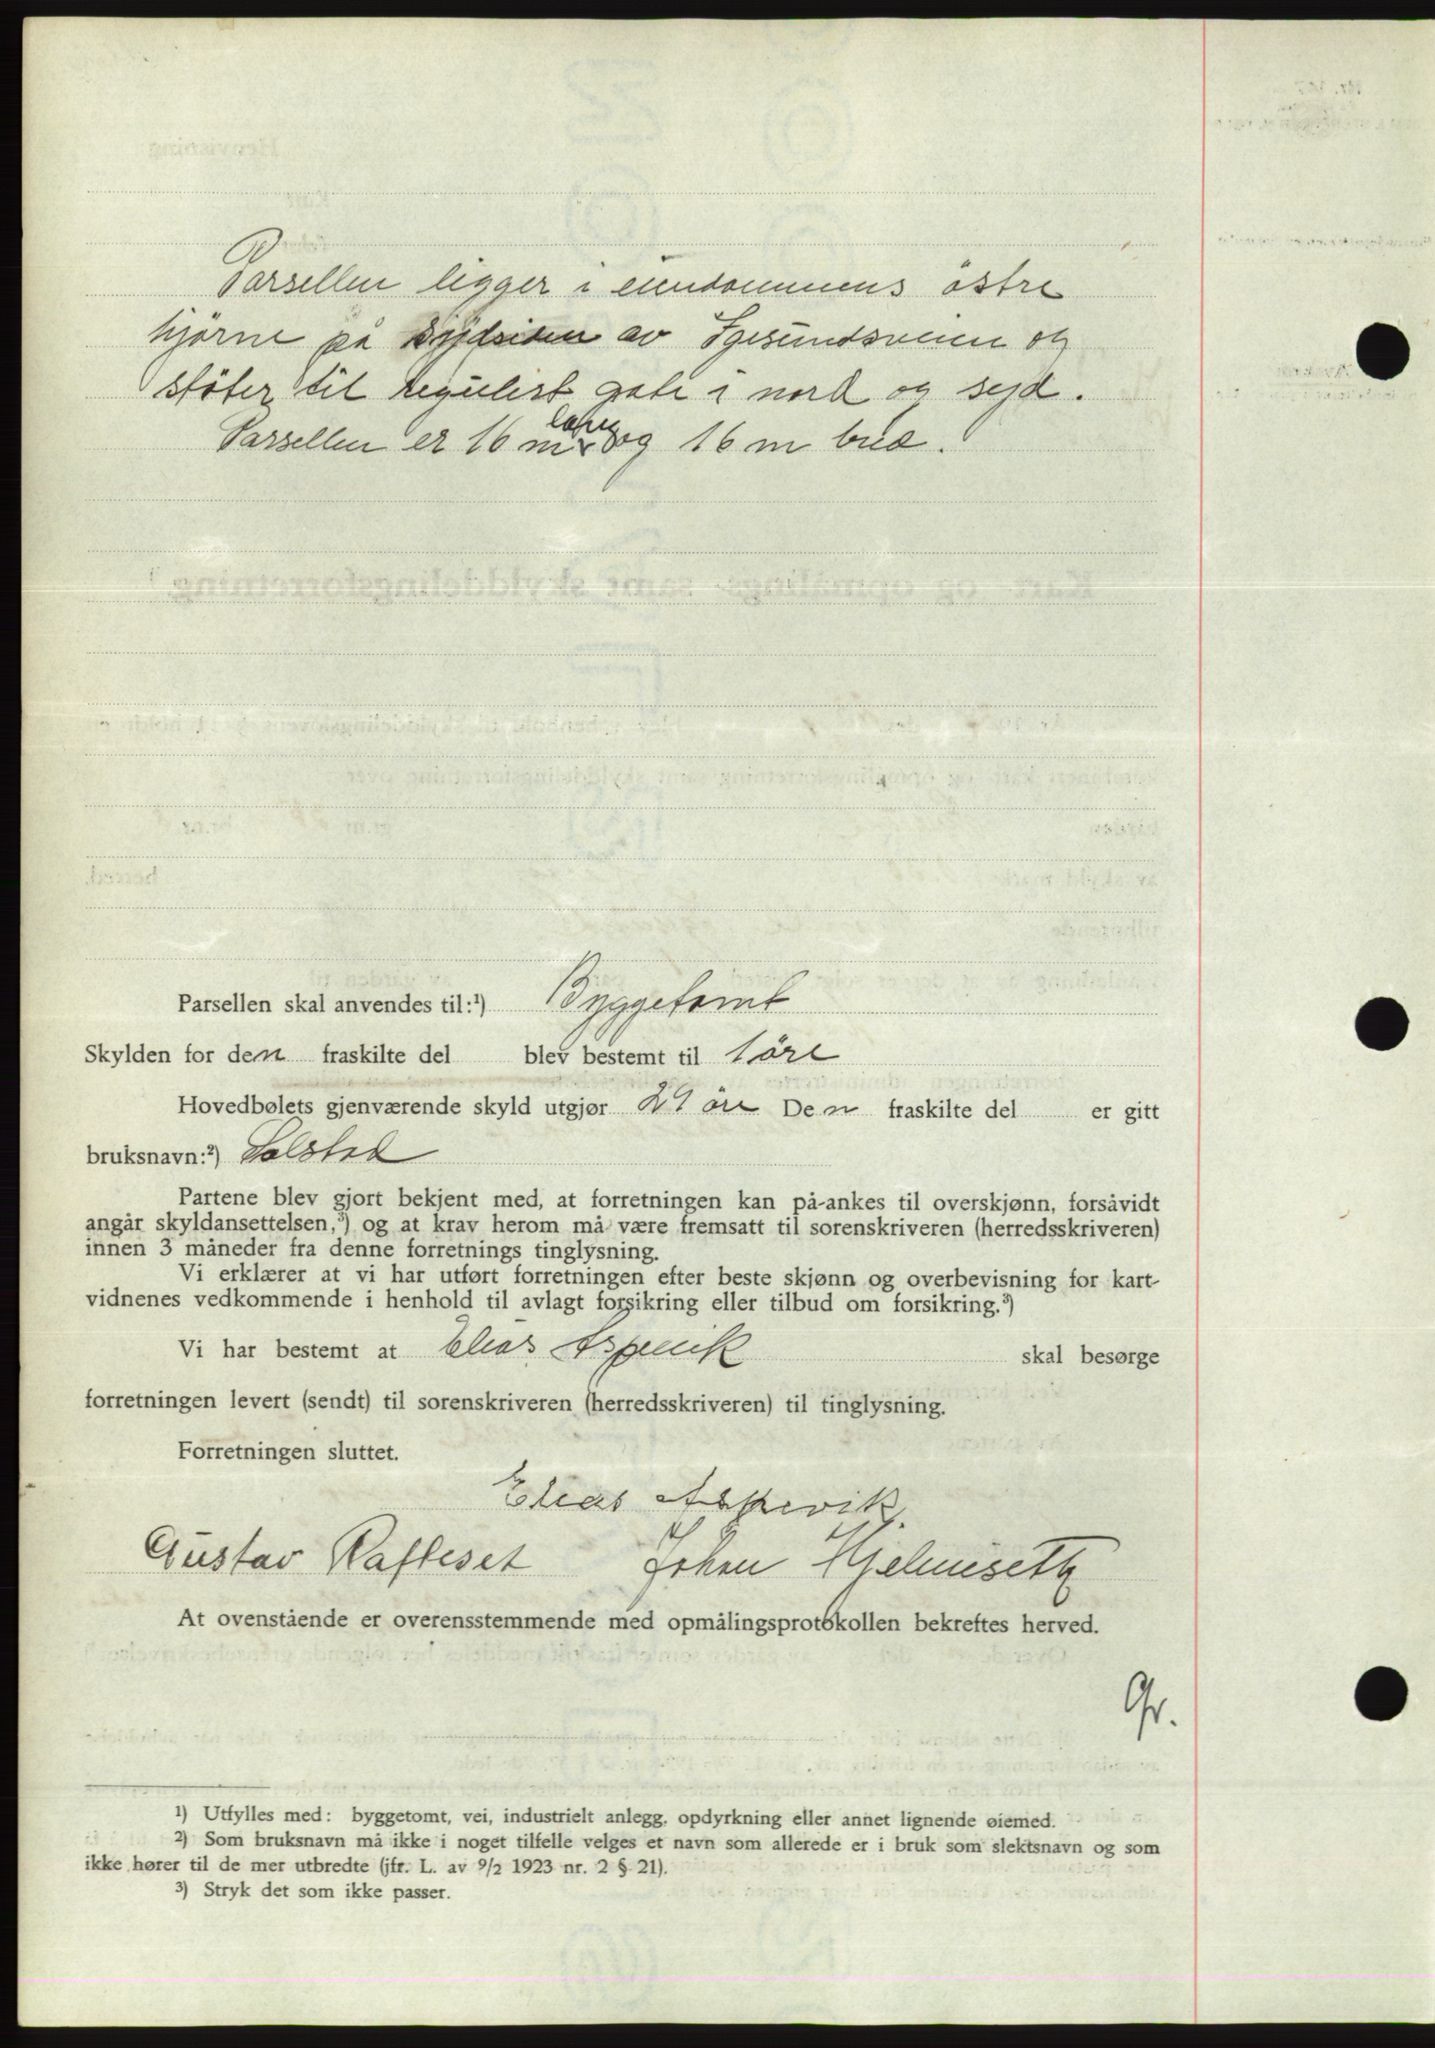 Parsellen ligger i eiendommens östre
hjörne på sydsiden av Igesundsveien og
stöter til regulert gate i nord og syd.
Parsellen er 16 m lang og 16 m bred.
Parsellen skal anvendes til:¹) Byggetomt
Skylden for den fraskilte del blev bestemt til 1 öre
Hovedbølets gjenværende skyld utgjør 29 öre Den fraskilte del er gitt
bruksnavn:²) Solstad
Partene blev gjort bekjent med, at forretningen kan på-ankes til overskjønn, forsåvidt
angår skyldansettelsen,³) og at krav herom må være fremsatt til sorenskriveren (herredsskriveren)
innen 3 måneder fra denne forretnings tinglysning.
Vi erklærer at vi har utført forretningen efter beste skjønn og overbevisning for kart-
vidnenes vedkommende i henhold til avlagt forsikring eller tilbud om forsikring.³)
Vi har bestemt at Elias Aspevik skal besørge
forretningen levert (sendt) til sorenskriveren (herredsskriveren) til tinglysning.
Forretningen sluttet.
Elias Aspevik
Gustav Rafteset Johan Hjelmseth
At ovenstående er overensstemmende med opmålingsprotokollen bekreftes herved.
Gr.
¹) Utfylles med: byggetomt, vei, industrielt anlegg, opdyrkning eller annet lignende øiemed.
²) Som bruksnavn må ikke i noget tilfelle velges et navn som allerede er i bruk som slektsnavn og som
ikke hører til de mer utbredte (jfr. L. av 9/2 1923 nr. 2 § 21).
³) Stryk det som ikke passer.